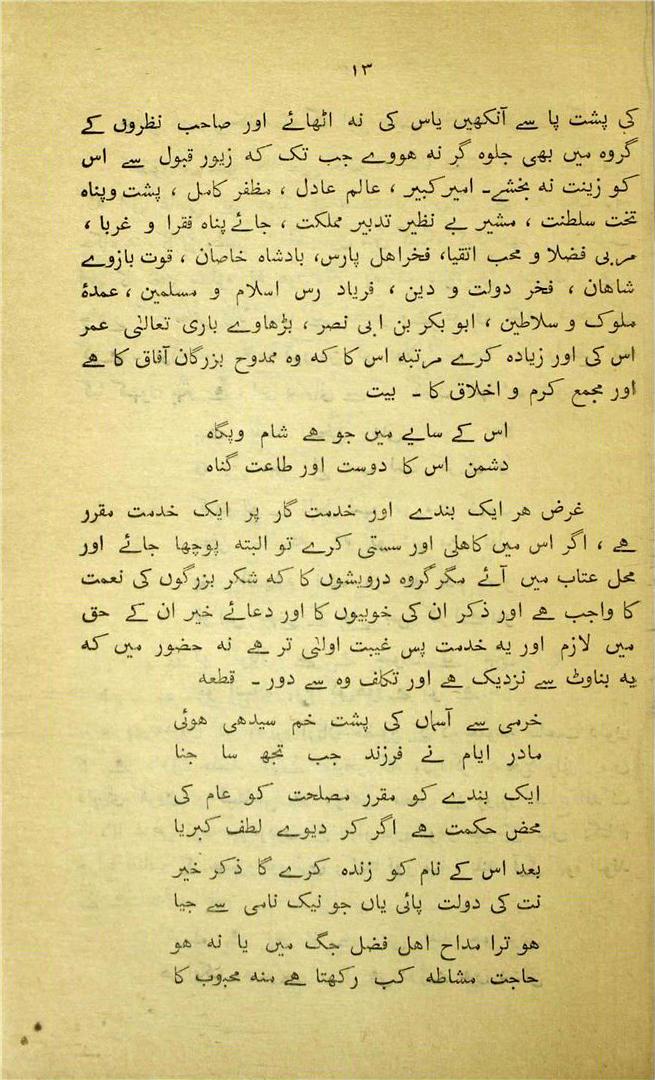 ۱۳
کی پشت پا سے آنکھیں یاس کی نہ اٹھائے اور صاحب نظروں کے
گروہ میں بھی جلوہ گر نہ ہووے جب تک کہ زیور قبول سے اس
کو زینت نہ بخشے۔ امیر کبیر ، عالم عادل ، مظفر کامل ، پشت و پناہ
تخت سلطنت ، مشیر بے نظیر تدبیر مملکت ، جائے پناہ فقرا و غربا ،
مربی فضلا و محب اتقیا، فخر اہل پارس، بادشاہ خاصان ، قوت بازوے
شاہان ، فخر دولت و دین ، فریاد رس اسلام و مسلمین ، عمدۂ
ملوک و سلاطین ، ابو بکر بن ابی نصر ، بڑھاوے باری تعالیٰ عمر
اس کی اور زیادہ کرے مرتبہ اس کا کہ وہ ممدوح بزرگان آفاق کا ہے
اور مجمع کرم و اخلاق کا ۔ بیت
اس کے سایے میں جو ہے شام و پگاہ
دشمن اس کا دوست اور طاعت گناہ
غرض ہر ایک بندے اور خدمت گار پر ایک خدمت مقرر
ہے ، اگر اس میں کاہلی اور سستی کرے تو البتہ پوچھا جائے اور
محل عتاب میں آئے مگر گروہ درویشوں کا کہ شکر بزرگوں کی نعمت
کا واجب ہے اور ذکر ان کی خوبیوں کا اور دعائے خیر ان کے حق
میں لازم اور یہ خدمت پس غیبت اولیٰ تر ہے نہ حضور میں کہ
یہ بناوٹ سے نزدیک ہے اور تکلف وہ سے دور ۔ قطعہ
خرمی سے آسماں کی پشت خم سیدھی ہوئی
مادر ایام نے فرزند جب تجھ سا جنا
ایک بندے کو مقرر مصلحت کو عام کی
محض حکمت ہے اگر کر دیوے لطف کبریا
بعد اس کے نام کو زندہ کرے گا ذکر خیر
نت کی دولت پائی یاں جو نیک نامی سے جیا
ہو ترا مداح اہل فضل جگ میں یا نہ ہو
حاجت مشاطہ کب رکھتا ہے منہ محبوب کا